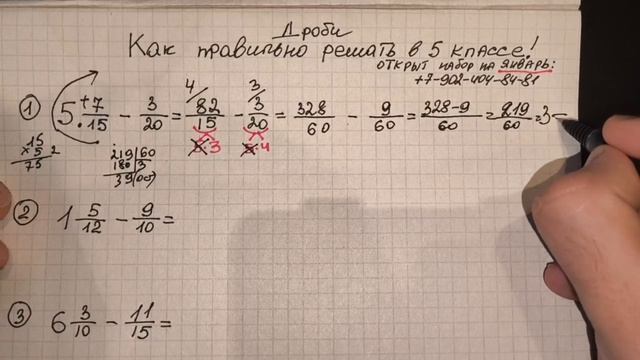 Дроби
Как правильно решать в 5 классе!
ОТКРЫТ НАБОР НА ЯНВАРЬ:
+7-902-404-84-81
① 5 · + 7/15 - 3/20 = 82/15 - 3/20 = 328/60 - 9/60 = 328-9/60 = 219/60 = 3
4 3
15 × 5 75 2
5·3 5·4
219 60 180 3 39(ост)
② 1 5/12 - 9/10 =
③ 6 3/10 - 11/15 =